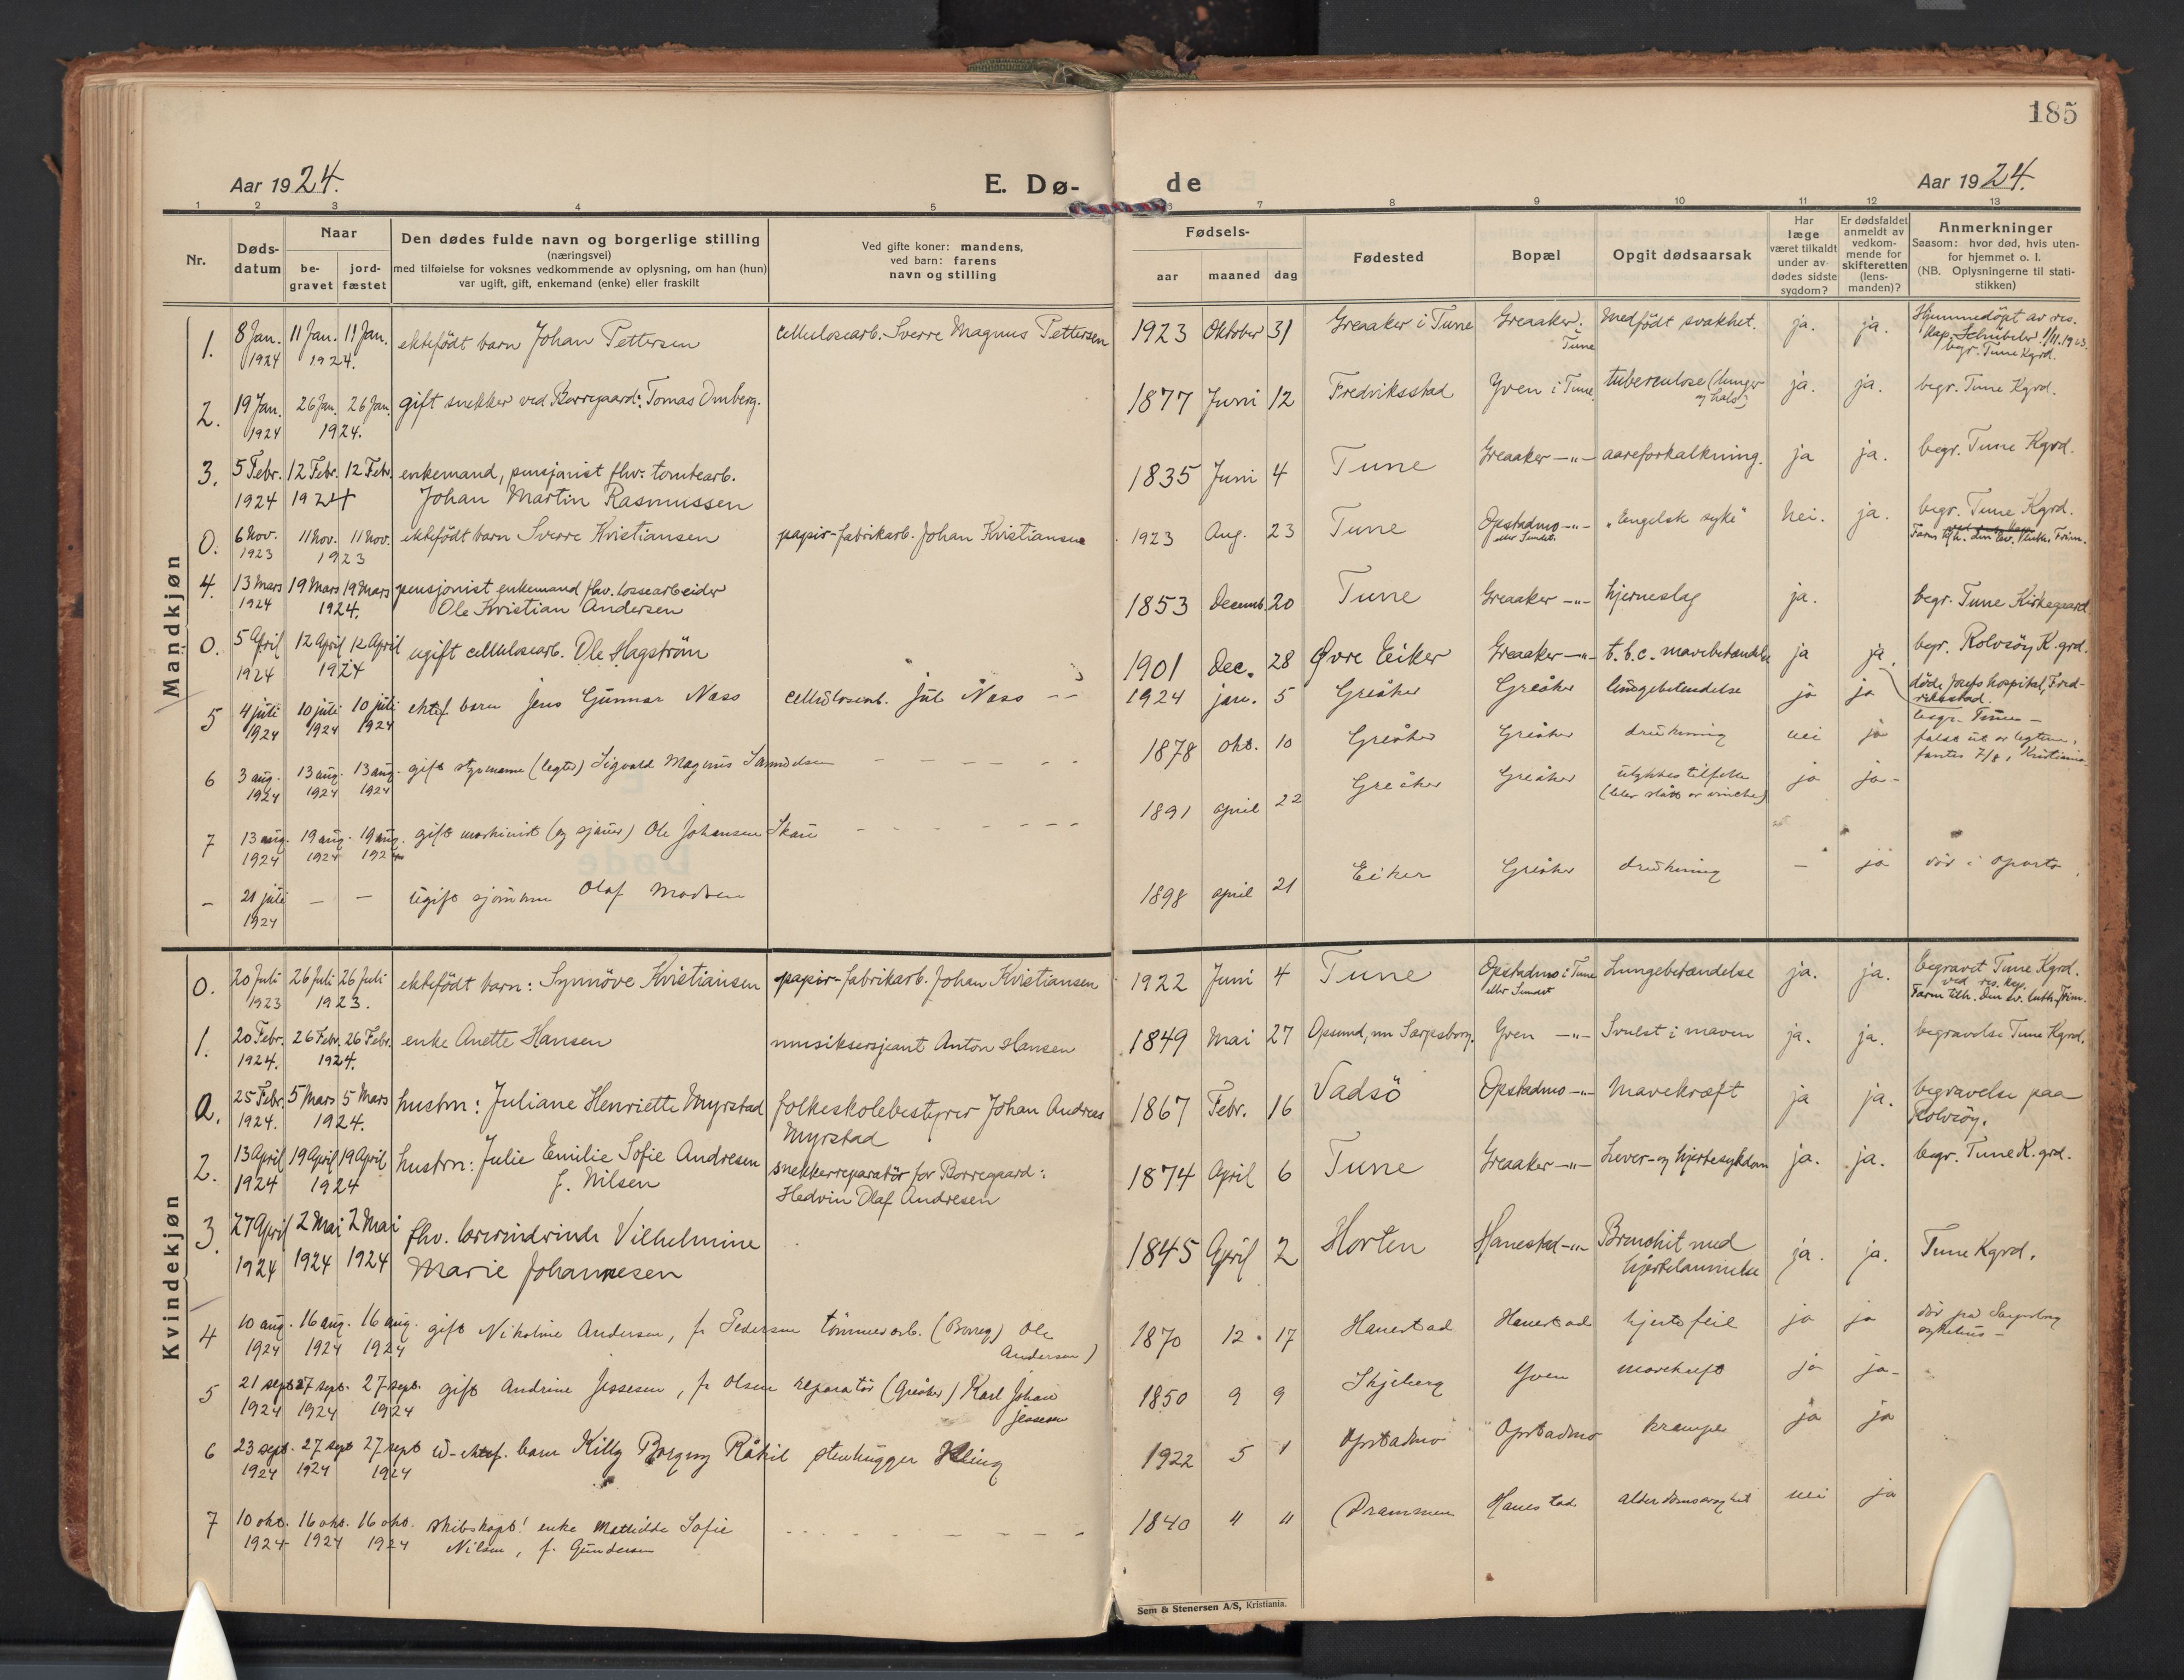 185
Aar 1924. E. Dø- de Aar 1924.
1 2 3 4 5 6 7 8 9 10 11 12 13
Nr. Døds-datum Naar be-gravet jord-fæstet
Den dødes fulde navn og borgerlige stilling
(næringsvei)
med tilføielse for voksnes vedkommende av oplysning, om han (hun)
var ugift, gift, enkemand (enke) eller fraskilt
Ved gifte koner: mandens,
ved barn: farens
navn og stilling
Fødsels- aar maaned dag
Fødested
Bopæl
Opgit dødsaarsak
Har læge været tilkaldt under av-dødes sidste sygdom?
Er dødsfaldet anmeldt av vedkom-mende for skifteretten (lens-manden)?
Anmerkninger
Saasom: hvor død, hvis uten-
for hjemmet o. l.
(NB. Oplysningerne til stati-
stikken)
Mandkjøn
1. 8 Jan. 1924 11 Jan. 11 Jan. 1924. ektefödt barn Johan Pettersen cellulosearb. Sverre Magnus Pettersen 1923 Oktober 31 Greaaker i Tune Greaaker i Tune Medfödt svakhet. ja. ja. Hjemmedöpt av res. kap. Schübeler 1/11. 1923. begr. Tune Kgrd.
2. 19 Jan. 1924 26 Jan. 26 Jan. 1924. gift snekker ved Borregaard: Tomas Omberg. 1877 Juni 12 Fredriksstad Yven i Tune tuberculose (lunger og hals) ja. ja. begr. Tune Kgrd.
3. 5 Febr. 1924 12 Febr. 12 Febr. 1924 enkemand, pensjonist fhv. tomtearb. Johan Martin Rasmussen 1835 Juni 4 Tune Greaaker -"- aareforkalkning. ja ja. begr. Tune Kgrd.
0. 6 Nov. 1923 11 Nov. 11 Nov. 1923 ektefödt barn Sverre Kristiansen papir-fabrikarb. Johan Kristiansen 1923 Aug. 23 Tune Opstadmo -"- eller Sundet. "Engelsk syke" hei. ja. begr. Tune Kgrd. Farm tilh. den Ev. luth. Frim.
4. 13 Mars 1924 19 Mars 19 Mars 1924. pensjonist enkemand fhv. lossearbeider Ole Kristian Andersen 1853 Decemb. 20 Tune Greaaker -"- hjerneslag ja. begr. Tune Kirkegaard
0. 5 April 1924 12 April 12 April 1924 ugift cellulosearb. Ole Hagström 1901 Dec. 28 Øvre Eiker Greaaker -"- t.b.c. mavebetændelse ja ja. begr. Rolvsöy K.grd. döde Josefs hospital, Fred-rikkstad.
5 4 juli 1924 10 juli 1924 10 juli 1924 ektef barn Jens Gunnar Næss cellulosearb. Jul Næss 1924 jan. 5 Greåker Greåker lungebetendelse ja ja begr. Tune -
6 3 aug. 1924 13 aug. 1924 13 aug. 1924 gift styrmann (legter) Sigvald Magnus Samuelsen 1878 okt. 10 Greåker Greåker drukning nei ja falt ut av legteren, fantes 7/8, Kristiania
7 13 aug. 1924 19 aug. 1924 19 aug. 1924 gift maskinist (og sjauer) Ole Johansen Skau 1891 april 22 Greåker Greåker ulykkestilfelle (blev slått av vinche) ja ja-
- 21 juli 1924 - - ugift sjömann Olaf Madsen 1898 april 21 Eiker Greåker drukning - ja död i Oporto
Kvindekjøn
0. 20 Juli 1923 26 Juli 26 Juli 1923. ektefödt barn: Synnöve Kristiansen papir-fabrikarb. Johan Kristiansen 1922 Juni 4 Tune Opstadmo i Tune eller Sundet Lungebetændelse ja. ja. begravet Tune Kgrd. ved res. kap. Farm tilh. Den ev. luth. Frim.
1. 20 Febr. 1924. 26 Febr. 26 Febr. 1924. enke Anette Hansen musiksersjeant Anton Hansen 1849 Mai 27 Opsund, nu Sarpsborg. Yven -"- Svulst i maven ja. ja. begravelse Tune Kgrd.
0. 25 Febr. 1924. 5 Mars 5 Mars 1924. hustru: Juliane Henriette Myrstad folkeskolebestyrer Johan Andreas Myrstad 1867 Febr. 16 Vadsö Opstadmo -"- Mavekræft ja ja. begravelse paa Rolvsöy.
2. 13 April 1924 19 April 19 April 1924 hustru: Julie Emilie Sofie Andresen f. Nilsen snekkerreparatör for Borregaard: Hedvin Olaf Andresen 1874 April 6 Tune Greaaker -"- Lever- og hjertesykdom ja. ja. begr. Tune K.grd.
3. 27 April 1924 2 Mai 1924 2 Mai 1924 fhv. lærerindinde Vilhelmine Marie Johannesen 1845 April 2 Horten Hanestad -"- Bronchit med hjertelammelse ja. ja. Tune Kgrd.
4 10 aug. 1924 16 aug. 1924 16 aug. 1924 gift Nikoline Andersen, f. Pedersen tömmerarb. (Borreg.) Ole Andersen) 1870 12 17 Hanestad Hanestad hjertefeil ja ja död på Sarpsborg sykehus -
5 21 sept. 1924 27 sept. 1924 27 sept. 1924 gift Andrine Jessesen, f. Olsen reparatör (Greåker) Karl Johan Jessesen 1850 9 9 Skjeberg Yven mavekreft ja ja-
6 23 sept. 1924 27 sept 1924 27 sept 1924 u-ektef. barn Killy Borgny Råkil stenhugger Kling 1922 5 1 Opstadmo Opstadmo krampe ja ja
7 10 okt. 1924 16 okt. 1924 16 okt. 1924 skibskapt. enke Mathilde Sofie Nilsen, f. Gundersen 1840 " " Drammen Hanestad alderdomssvaghet nei ja
Sem & Stenersen A/S, Kristiania.